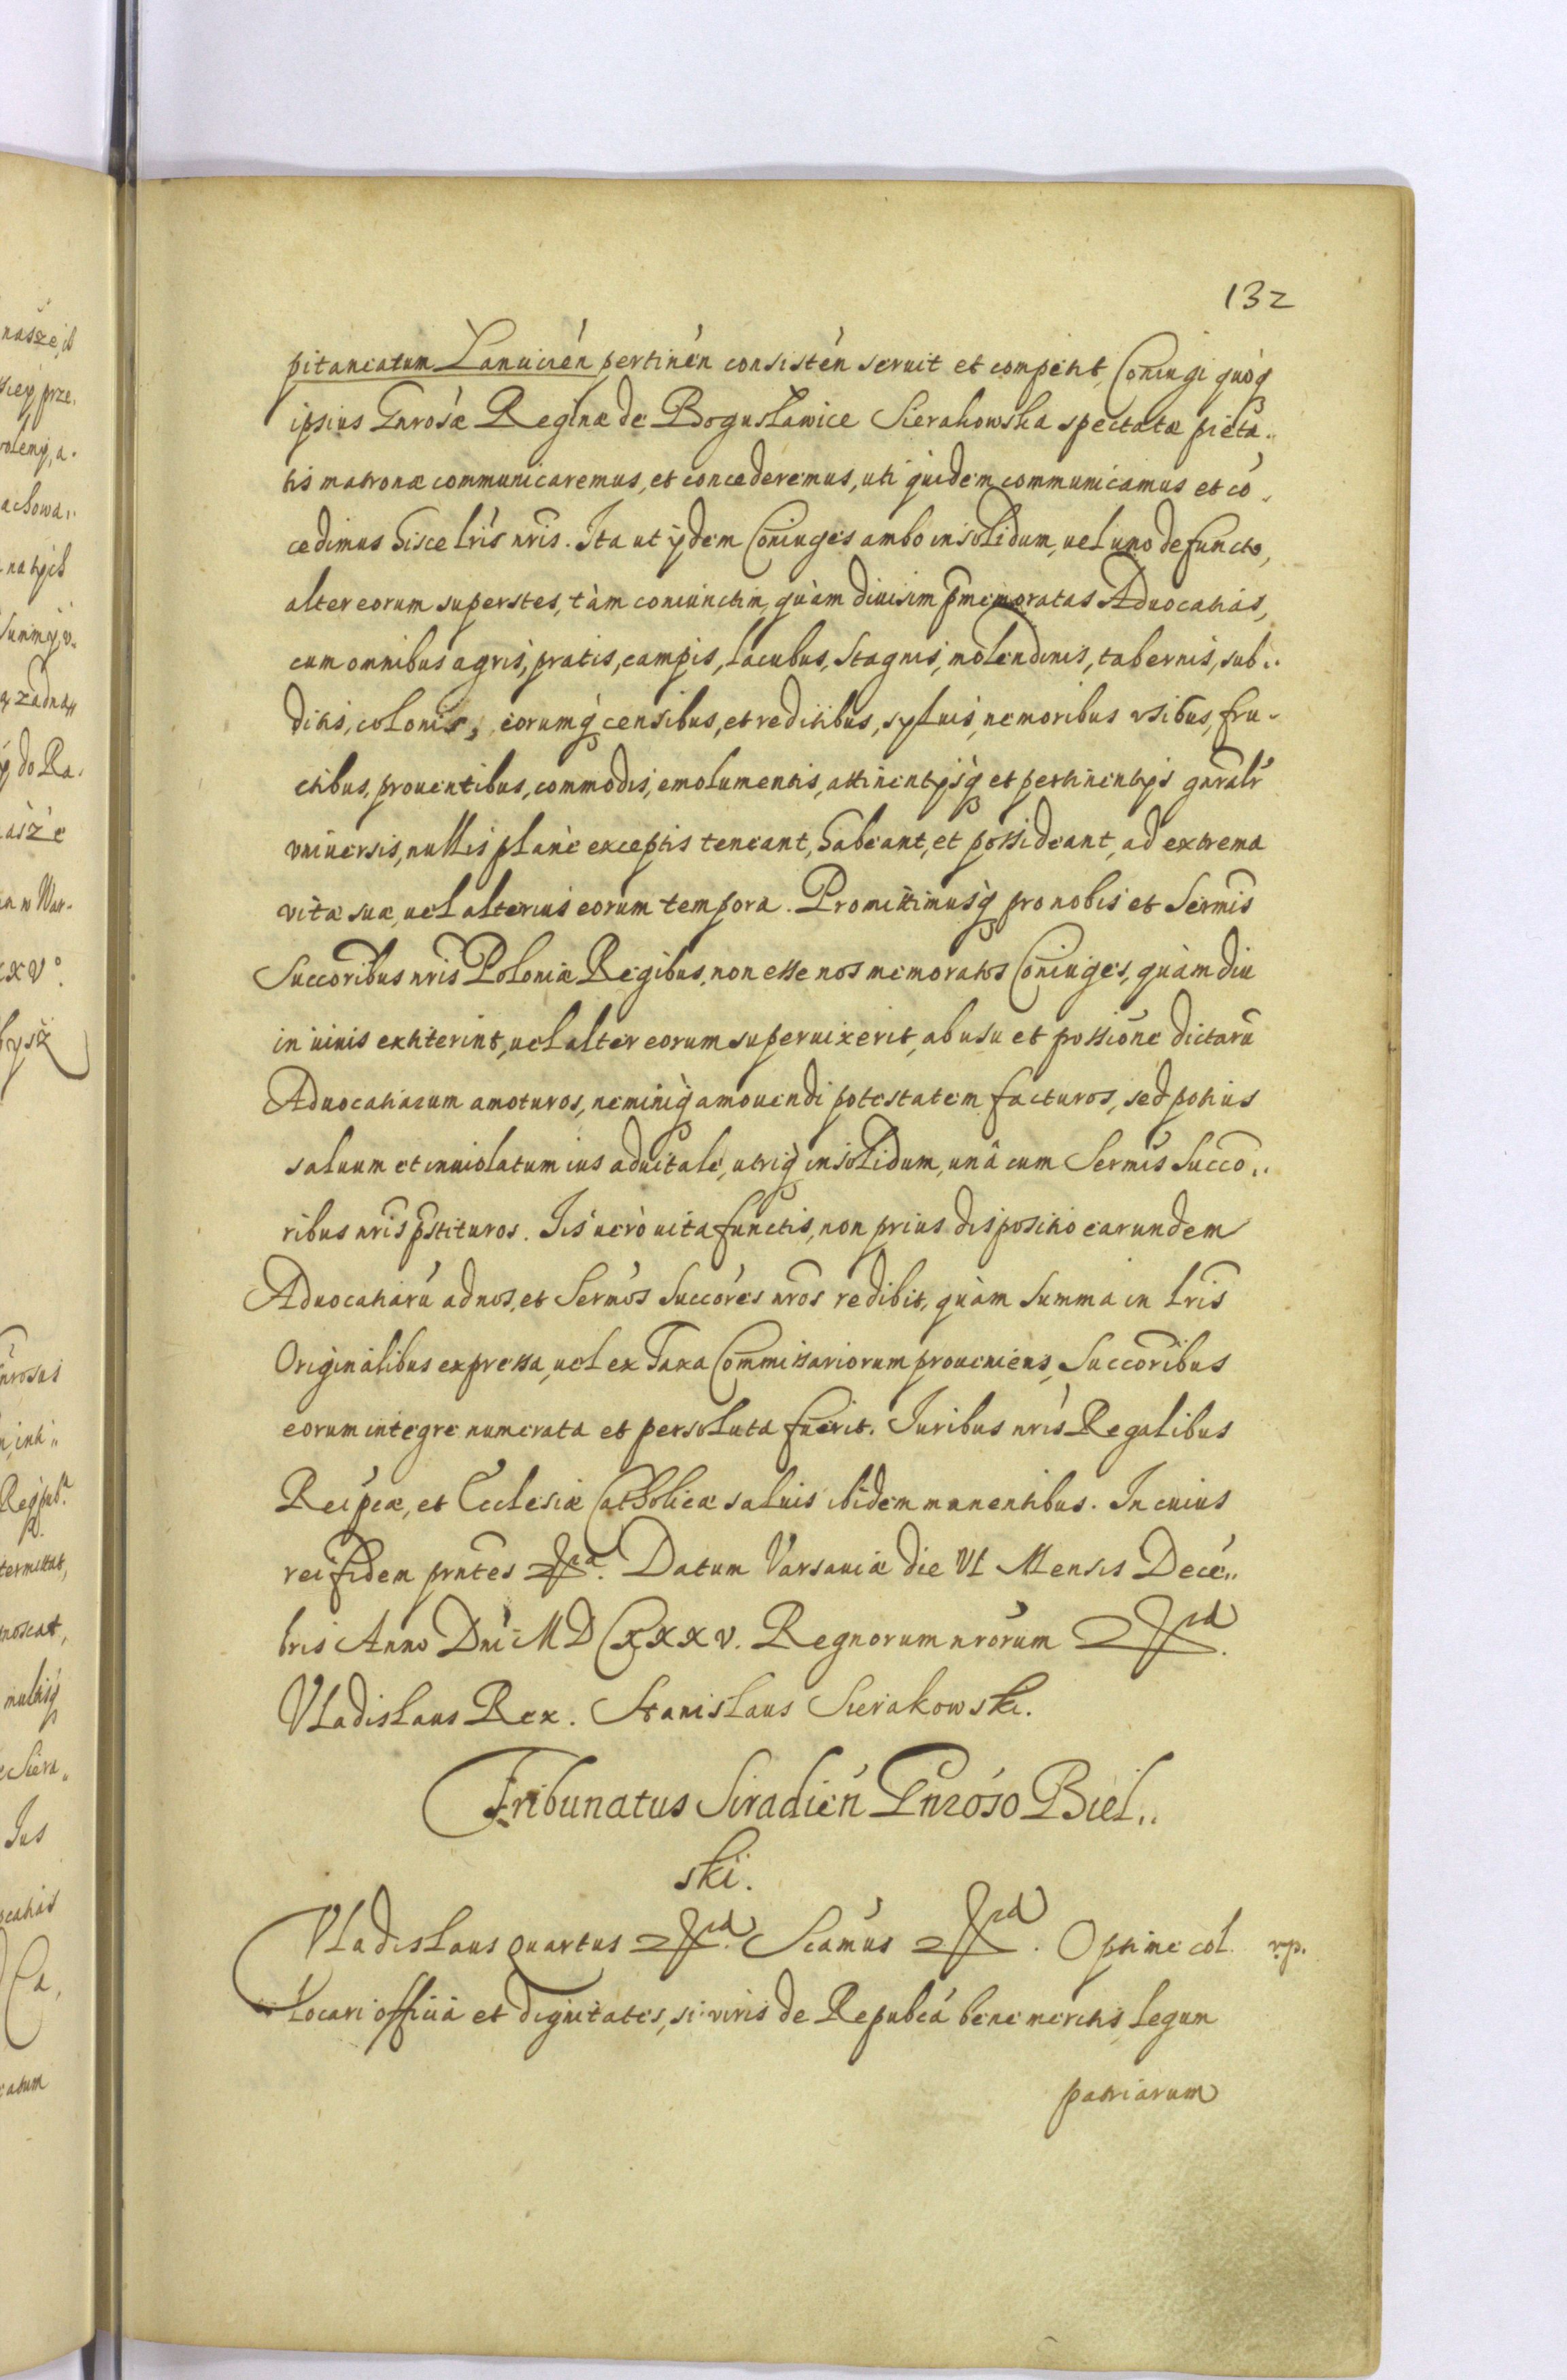 132
pitaneatum Lanuicień pertinén consistén seruit et competit, Coniugi quoq
ipsius Gnrosæ Reginæ de Bogusławice Sierakowska spectatæ pietā..
tis matronæ communicaremus, et concederemus, uti quidem communicamus et cō,
cedimus hisce lris nris. Ita ut ijdem Coniuges ambo insolidum, uel uno defuncto,
alter eorum superstes, tàm coniunctim, quàm diuisim pmemoratas Aduocatias,
cum omnibus agris, pratis, campis, lacubus, stagnis, molendinis, tabernis, sub..
ditis, colonis, eorumq censibus, et reditibus, syluis, nemoribus vsibus, fru-
ctibus, prouentibus, commodis, emolumentis, attinentijsq et pertinentijs gnralr
vniuersis, nullis planè exceptis teneant, habeant, et possideant, ad extrema
vitæ suæ, uel alterius eorum tempora. Promittimusq pro nobis et Sermis
Succoribus nris Poloniæ Regibus, non esse nos memoratos Coniuges, quàm diu
in uiuis extiterint, uel alter eorum superuixerit, ab usu et possione dictarū
Aduocatiarum amoturos, neminiq amouendi potestatem facturos, sed potius
saluum et inuiolatum ius aduitale, utriq insolidum, unâ cum Sermis Succo..
ribus nris pstituros. Iis uerò uita functis, non prius dispositio earundem
Aduocatiarū ad nos, et Sermos Succores nros redibit, quàm summa in lris
Originalibus expressa, uel ex Taxa Commissariorum proueniens, Succoribus
eorum integre numerata et persoluta fuerit. Iuribus nris Regalibus
Reipcæ, et Ecclesiæ Catholicæ saluis ibidem manentibus. In cuius
rei fidem prntes &ca. Datum Varsauiæ die VI Mensis Decē..
bris Anno Dni MDCXXXV. Regnorum nrorum &ca.
Vladislaus Rex. Stanislaus Sierakowski.
Tribunatus Siradień Gnroso Biel..
ski.
Vladislaus quartus &ca. Scamus &ca. Optime col v.p.
locari officia et dignitates, si viris de Repubca bene meritis, legum
patriarum